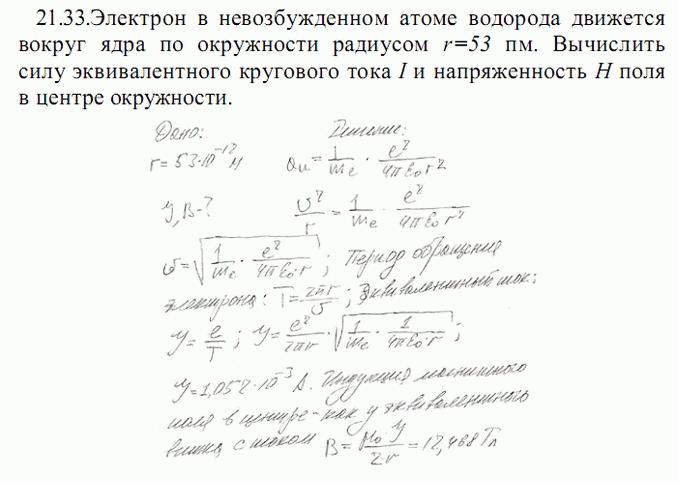 21.33.Электрон в невозбужденном атоме водорода движется
вокруг ядра по окружности радиусом r=53 пм. Вычислить
силу эквивалентного кругового тока I и напряженность H поля
в центре окружности.
Дано: Решение:
r=53·10⁻¹² м aₙ = 1/mₑ · e²/4πε₀r²
У,В-? υ²/r = 1/mₑ · e²/4πε₀r²
υ = √(1/mₑ · e²/4πε₀·r) ; Период обращения
электрона: T = 2πr/υ ; Эквивалентный ток:
У = e/T ; У = e²/2πr · √(1/mₑ · 1/4πε₀·r) ;
У=1,052·10⁻³ А. Индукция магнитного
поля в центре - как у эквивалентного
витка с током B = μ₀·У/2·r = 12,468 Тл